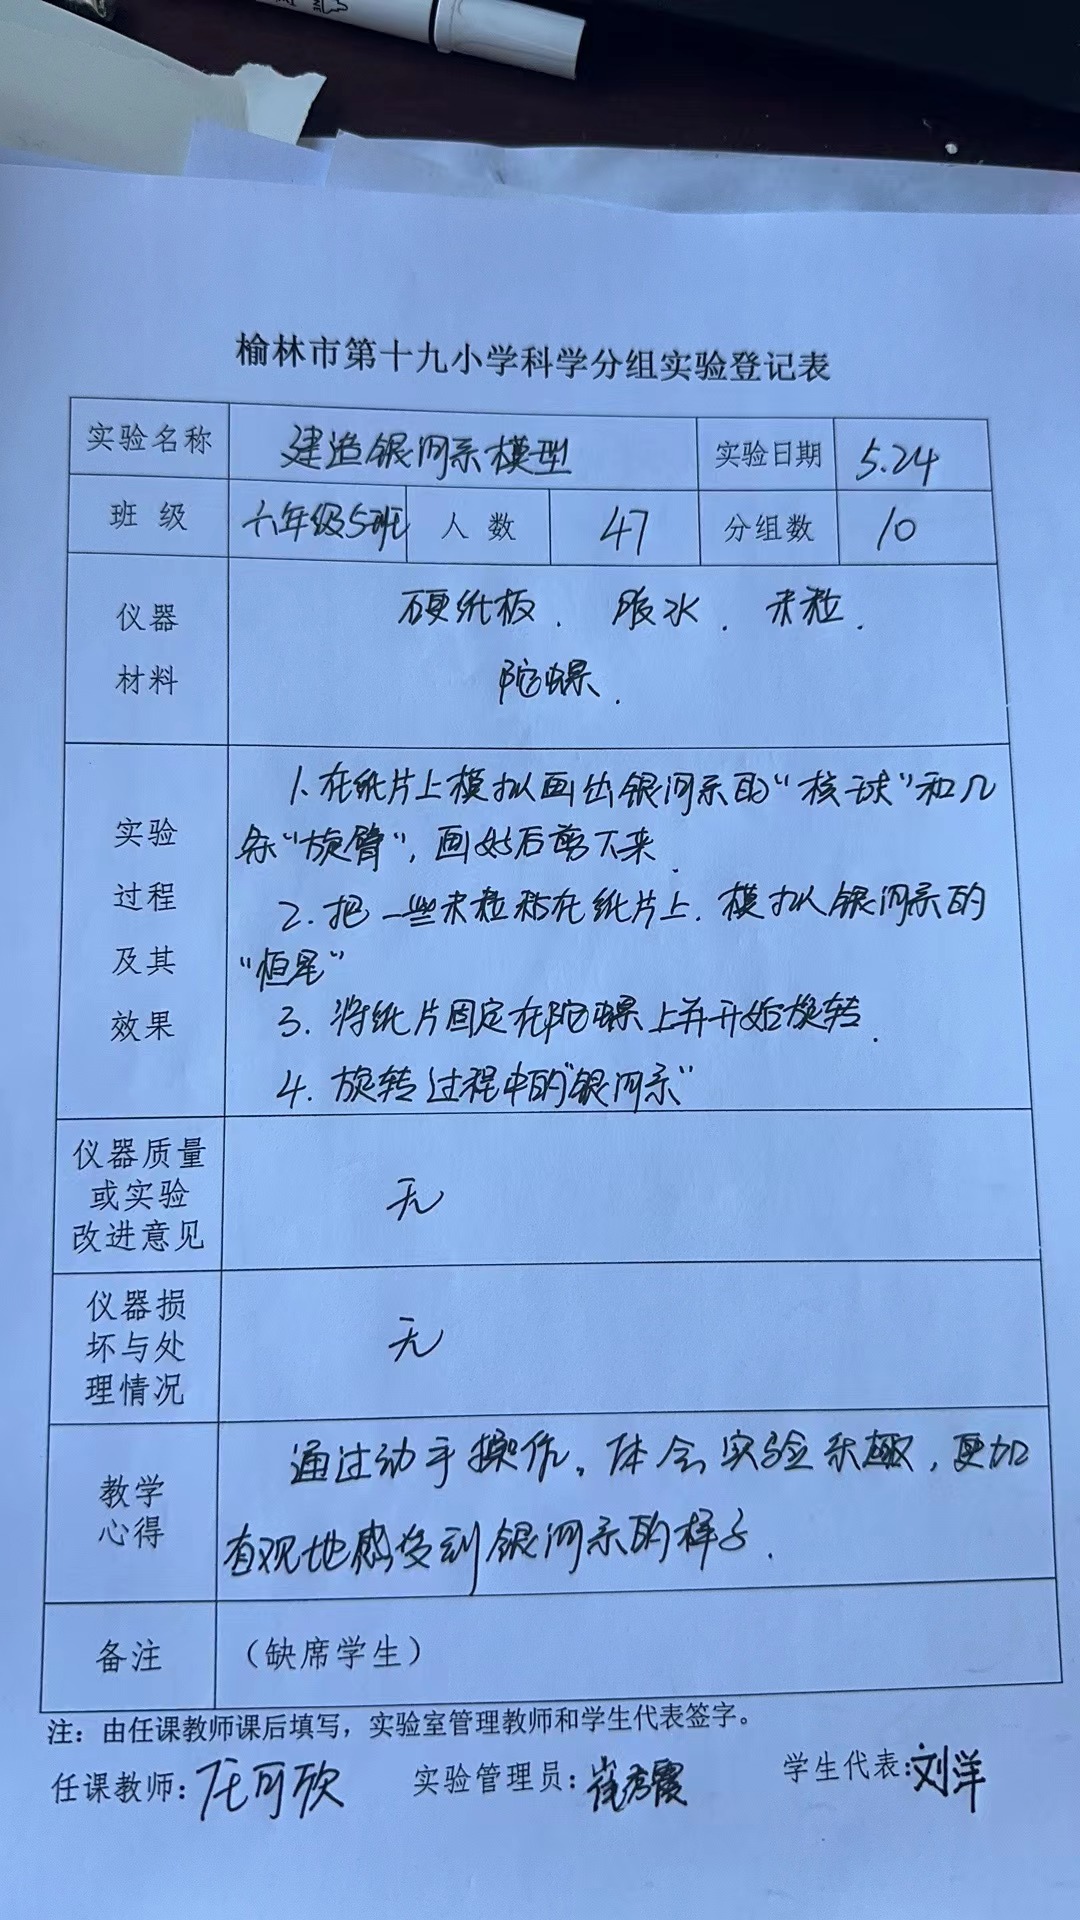 榆林市第十九小学科学分组实验登记表
实验名称 建造银河系模型 实验日期 5.24
班 级 六年级5班 人 数 47 分组数 10
仪器 硬纸板. 胶水. 米粒.
材料 陀螺.
1.在纸片上模拟画出银河系的“核球”和几
实验 条“旋臂”,画好后剪下来.
过程 2.把一些米粒粘在纸片上.模拟银河系的
及其 “恒星”
效果 3.将纸片固定在陀螺上并开始旋转.
4.旋转过程中的“银河系”
仪器质量
或实验 无
改进意见
仪器损
坏与处 无
理情况
教学 通过动手操作。体会实验乐趣,更加
心得 直观地感受到银河系的样子.
备注 (缺席学生)
注:由任课教师课后填写,实验室管理教师和学生代表签字。
任课教师: 任可欣 实验管理员: 崔霞 学生代表:刘洋